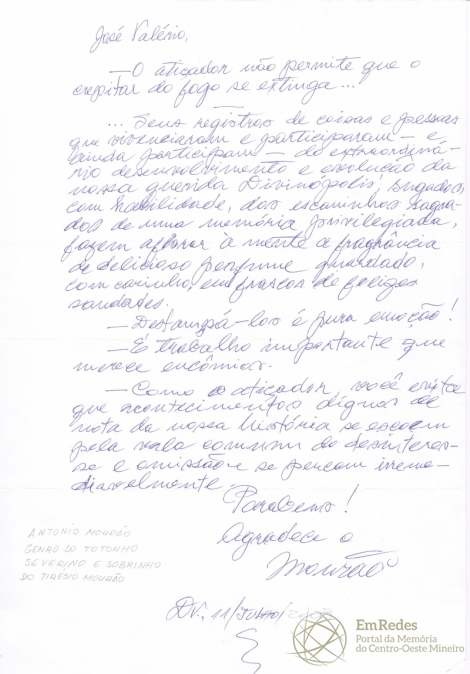 José Valério,
— O atiçador não permite que o
crepitar do fogo se extinga...
... Seus registros de coisas e pessoas
que vivenciaram e participaram — e
ainda participam — do extraordiná-
rio desenvolvimento e evolução da
nossa querida Divinópolis,
com habilidade, dos escaninhos sagra-
dos de uma memória privilegiada,
fazem aflorar à mente a fragrância
de delicioso perfume guardado,
com carinho, em frascos de felizes
saudades.
— Destampá-los é pura emoção!
— É trabalho importante que
merece encômios.
— Como o atiçador, você evita
que acontecimentos dignos de
nota da nossa História se escoem
pela vala comum do desinteres-
se e omissão e se percam irreme-
diavelmente.
Parabéns!
Agradece o
Mourão
ANTONIO MOURÃO
GENRO DO TOTONHO
SEVERINO E SOBRINHO
DO TIRÉSIO MOURÃO
DV., 11/Julho/
EmRedes
Portal da Memória
do Centro-Oeste Mineiro